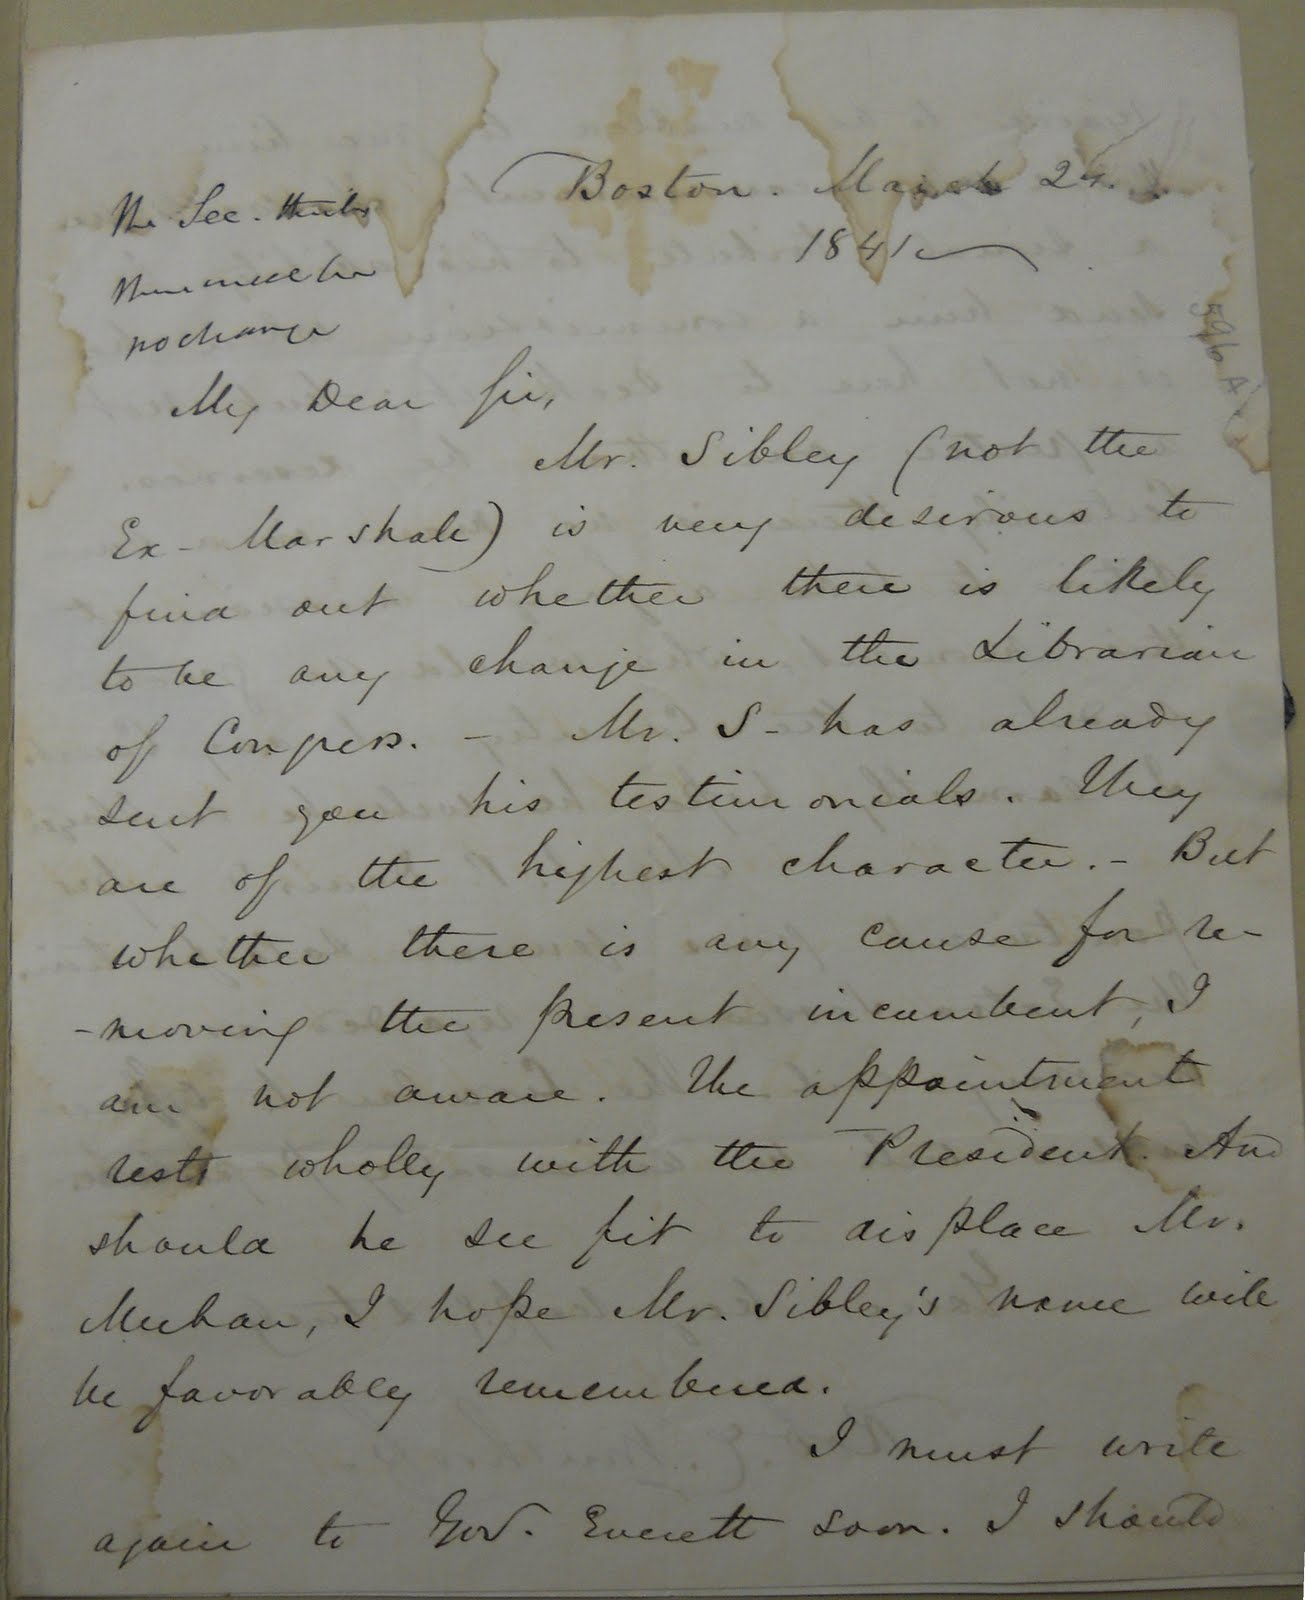 Boston. March 24.
1841
The Sec. thinks
there will be
no change
596 A
My Dear Sir,
Mr. Sibley (not the
Ex-Marshall) is very desirous to
find out whether there is likely
to be any change in the Librarian
of Congress. - Mr. S- has already
sent you his testimonials. They
are of the highest character. - But
whether there is any cause for re-
-moving the present incumbent, I
am not aware. The appointment
rests wholly with the President. And
should he see fit to displace Mr.
Meehan, I hope Mr. Sibley's name will
be favorably remembered.
I must write
again to Gov. Everett soon. I should